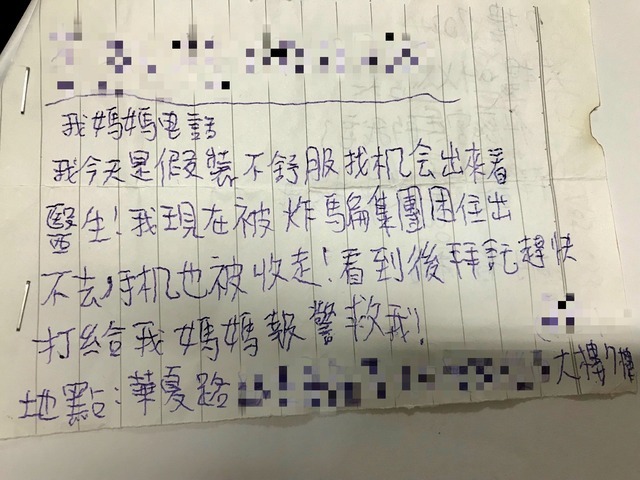 我媽媽电話
我今天是假裝不舒服找机会出來看
醫生!我現在被炸騙集團困住出
不去,手机也被收走!看到後拜託趕快
打給我媽媽報警救我!
地點:華夏路
大樓7樓